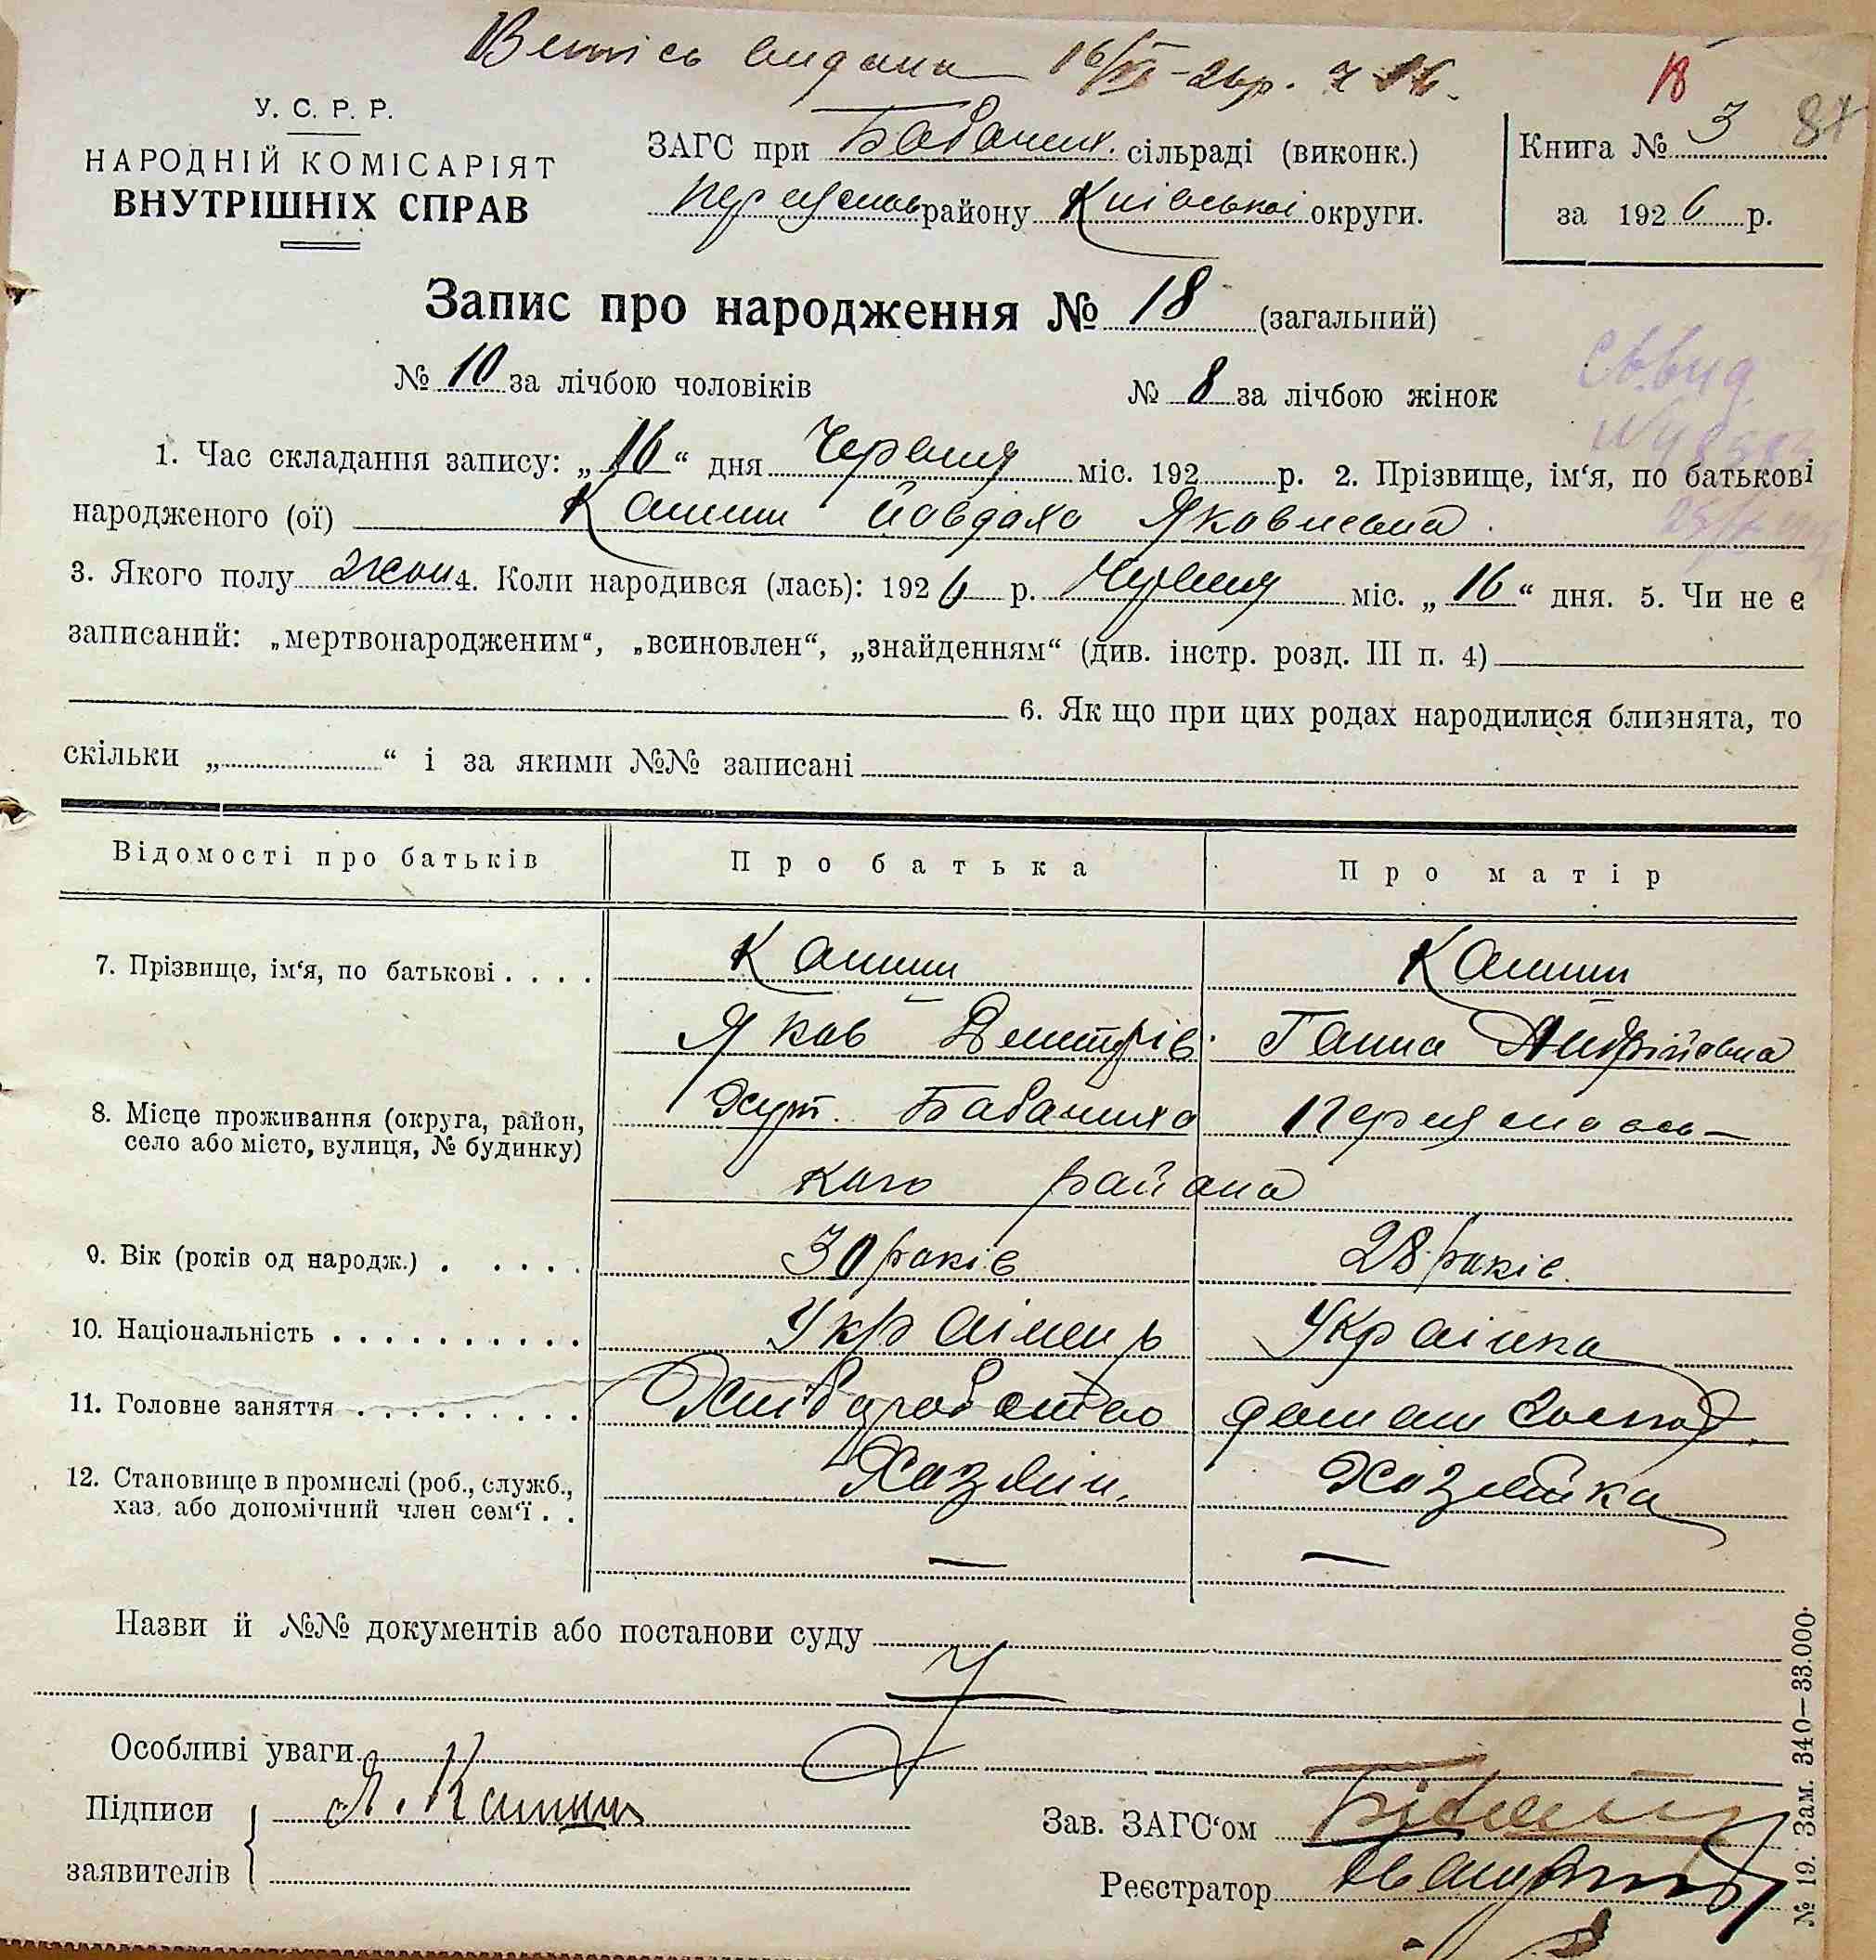 Випись видана 16/VI-26р. ч 16.
18
У. С. Р. Р.
НАРОДНІЙ КОМІСАРІЯТ
ВНУТРІШНІХ СПРАВ
ЗАГС при Бабаших. сільраді (виконк.)
Переяслав району Київської округи.
Книга № 3 84
за 1926 р.
Запис про народження № 18 (загальний)
№ 10 за лічбою чоловіків № 8 за лічбою жінок
Свид
1. Час складання запису: „16“ дня Червня міс. 192 р. 2. Прізвище, ім‘я, по батькові
народженого (ої) Йовдоха Яковлевна
3. Якого полу жон 4. Коли народився (лась): 1926 р. Червня міс. „16“ дня. 5. Чи не є
записаний: „мертвонародженим“, „всиновлен“, „знайденням“ (див. інстр. розд. III п. 4)
6. Як що при цих родах народилися близнята, то
скільки „ “ і за якими №№ записані
Відомості про батьків Про батька Про матір
7. Прізвище, ім‘я, по батькові
Яков Дмитрів. Ганна Андрійовна
8. Місце проживання (округа, район, село або місто, вулиця, № будинку) Хут. Переяславсь-
кого района
9. Вік (років од народж.) 30 років 28 років.
10. Національність Українець Українка
11. Головне заняття Хліборобство домаш Господ.
12. Становище в промислі (роб., служб., хаз. або допомічний член сем‘ї Хазяїн. Хазяйка
— —
Назви й №№ документів або постанови суду
Особливі уваги
Підписи
заявителів
Зав. ЗАГС‘ом
Реєстратор
№ 19. Зам. 340—33.000.